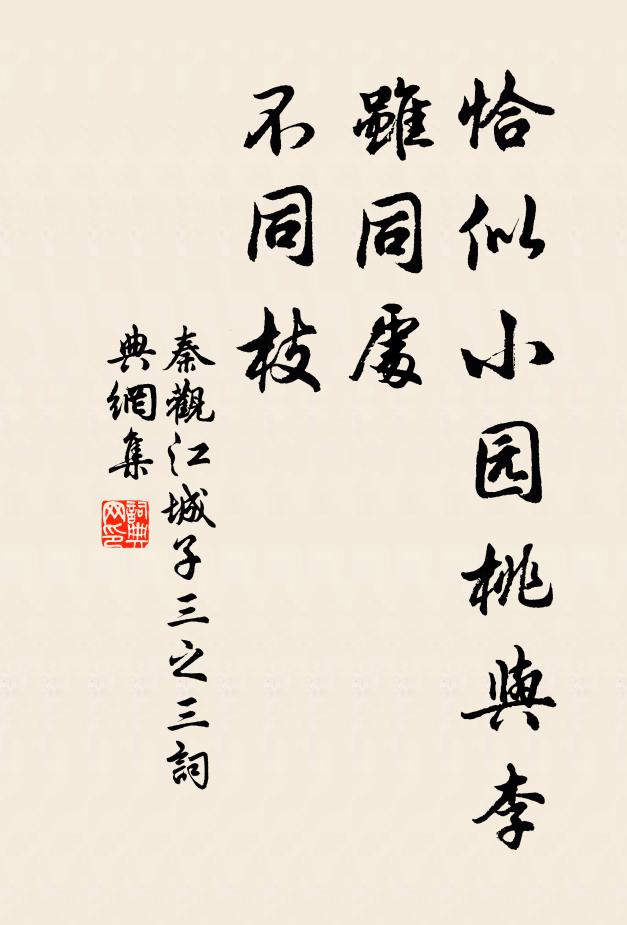 恰似小园桃與李
雖同處
不同枝
秦觀江城子三之三詞
典網集
詞典网印